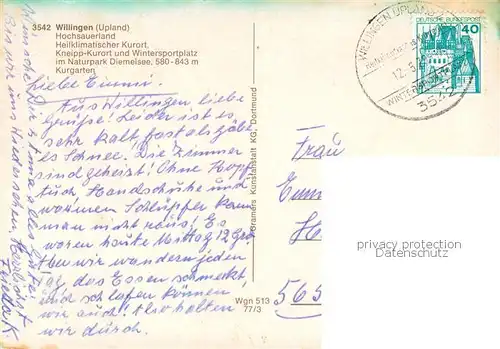 3542 Willingen (Upland)
Hochsauerland
Heilklimatischer Kurort,
Kneipp-Kurort und Wintersportplatz
im Naturpark Diemelsee, 580-843 m
Kurgarten
WILLINGEN, UPLAND
12.
WINTERSPORT
3542
DEUTSCHE BUNDESPOST
40
Liebe Emmi!
Aus Willingen, liebe
Grüße! Leider ist es
sehr kalt, fast als gäbe
es Schnee. Die Zimmer
sind geheizt! Ohne Kopf
tuch Handschuhe und
warmen Schlüpfer kann
man nicht raus! Es
waren heute Mittag 12 Gra
Aber wir wandern jeden
Tag, das Essen schmeckt,
und schlafen können
wir auch! Also halten
wir durch.
Wünsche Dir 1 mal alles Gute
Bis wir uns Wiedersehen, Herzlichst
Frieda K.
Cramers Kunstanstalt KG, Dortmund
Wgn 513
77/3
Frau
Emm
565
privacy protection
Datenschutz